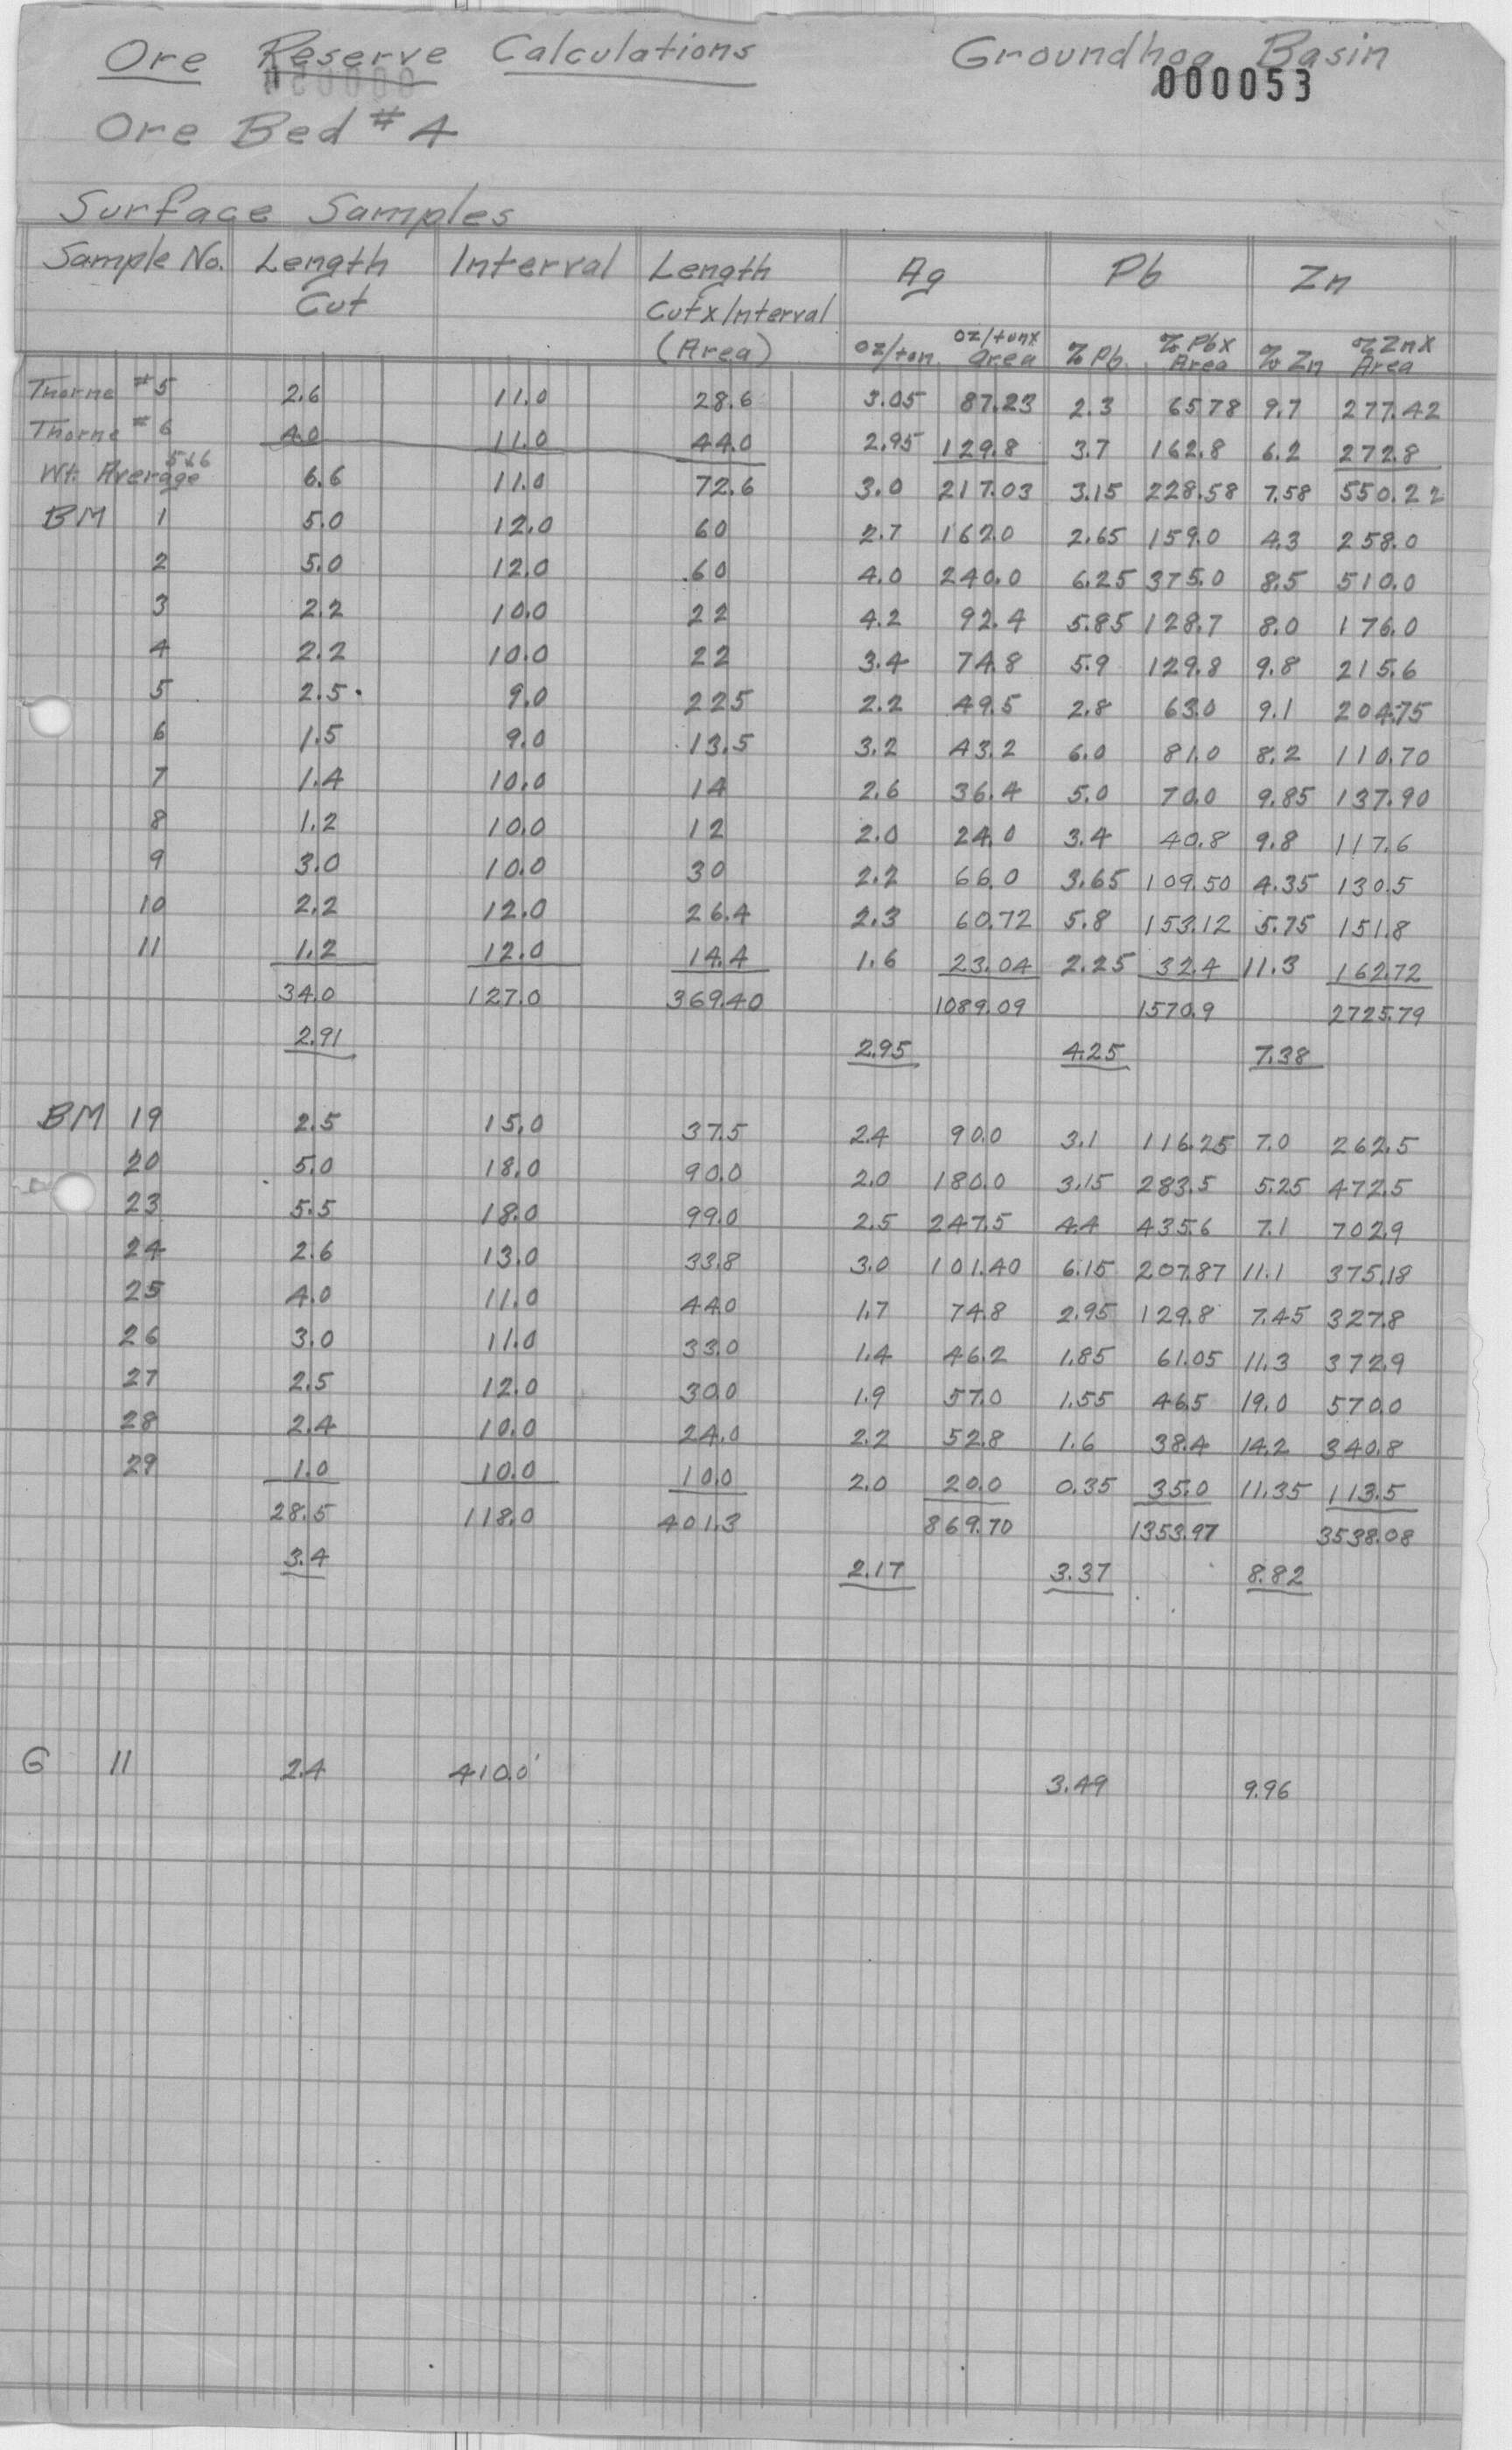 Ore Reserve Calculations Groundhog Basin
000053
Ore Bed #4
Surface Samples
Sample No. Length Cut Interval Length Cut x Interval (Area) Ag Pb Zn
oz/ton oz/ton x Area % Pb % Pb x Area % Zn % Zn x Area
Thorne #5 2.6 11.0 28.6 3.05 87.23 2.3 65.78 9.7 277.42
Thorne #6 4.0 11.0 44.0 2.95 129.8 3.7 162.8 6.2 272.8
Wt. Average 5&6 6.6 11.0 72.6 3.0 217.03 3.15 228.58 7.58 550.22
BM 1 5.0 12.0 60 2.7 162.0 2.65 159.0 4.3 258.0
2 5.0 12.0 60 4.0 240.0 6.25 375.0 8.5 510.0
3 2.2 10.0 22 4.2 92.4 5.85 128.7 8.0 176.0
4 2.2 10.0 22 3.4 74.8 5.9 129.8 9.8 215.6
5 2.5 9.0 22.5 2.2 49.5 2.8 63.0 9.1 204.75
6 1.5 9.0 13.5 3.2 43.2 6.0 81.0 8.2 110.70
7 1.4 10.0 14 2.6 36.4 5.0 70.0 9.85 137.90
8 1.2 10.0 12 2.0 24.0 3.4 40.8 9.8 117.6
9 3.0 10.0 30 2.2 66.0 3.65 109.50 4.35 130.5
10 2.2 12.0 26.4 2.3 60.72 5.8 153.12 5.75 151.8
11 1.2 12.0 14.4 1.6 23.04 2.25 32.4 11.3 162.72
34.0 127.0 369.40 1089.09 1570.9 2725.79
2.91 2.95 4.25 7.38
BM 19 2.5 15.0 37.5 2.4 90.0 3.1 116.25 7.0 262.5
20 5.0 18.0 90.0 2.0 180.0 3.15 283.5 5.25 472.5
23 5.5 18.0 99.0 2.5 247.5 4.4 435.6 7.1 702.9
24 2.6 13.0 33.8 3.0 101.40 6.15 207.87 11.1 375.18
25 4.0 11.0 44.0 1.7 74.8 2.95 129.8 7.45 327.8
26 3.0 11.0 33.0 1.4 46.2 1.85 61.05 11.3 372.9
27 2.5 12.0 30.0 1.9 57.0 1.55 46.5 19.0 570.0
28 2.4 10.0 24.0 2.2 52.8 1.6 38.4 14.2 340.8
29 1.0 10.0 10.0 2.0 20.0 0.35 35.0 11.35 113.5
28.5 118.0 401.3 869.70 1353.97 3538.08
3.4 2.17 3.37 8.82
G 11 2.4 410.0' 3.49 9.96